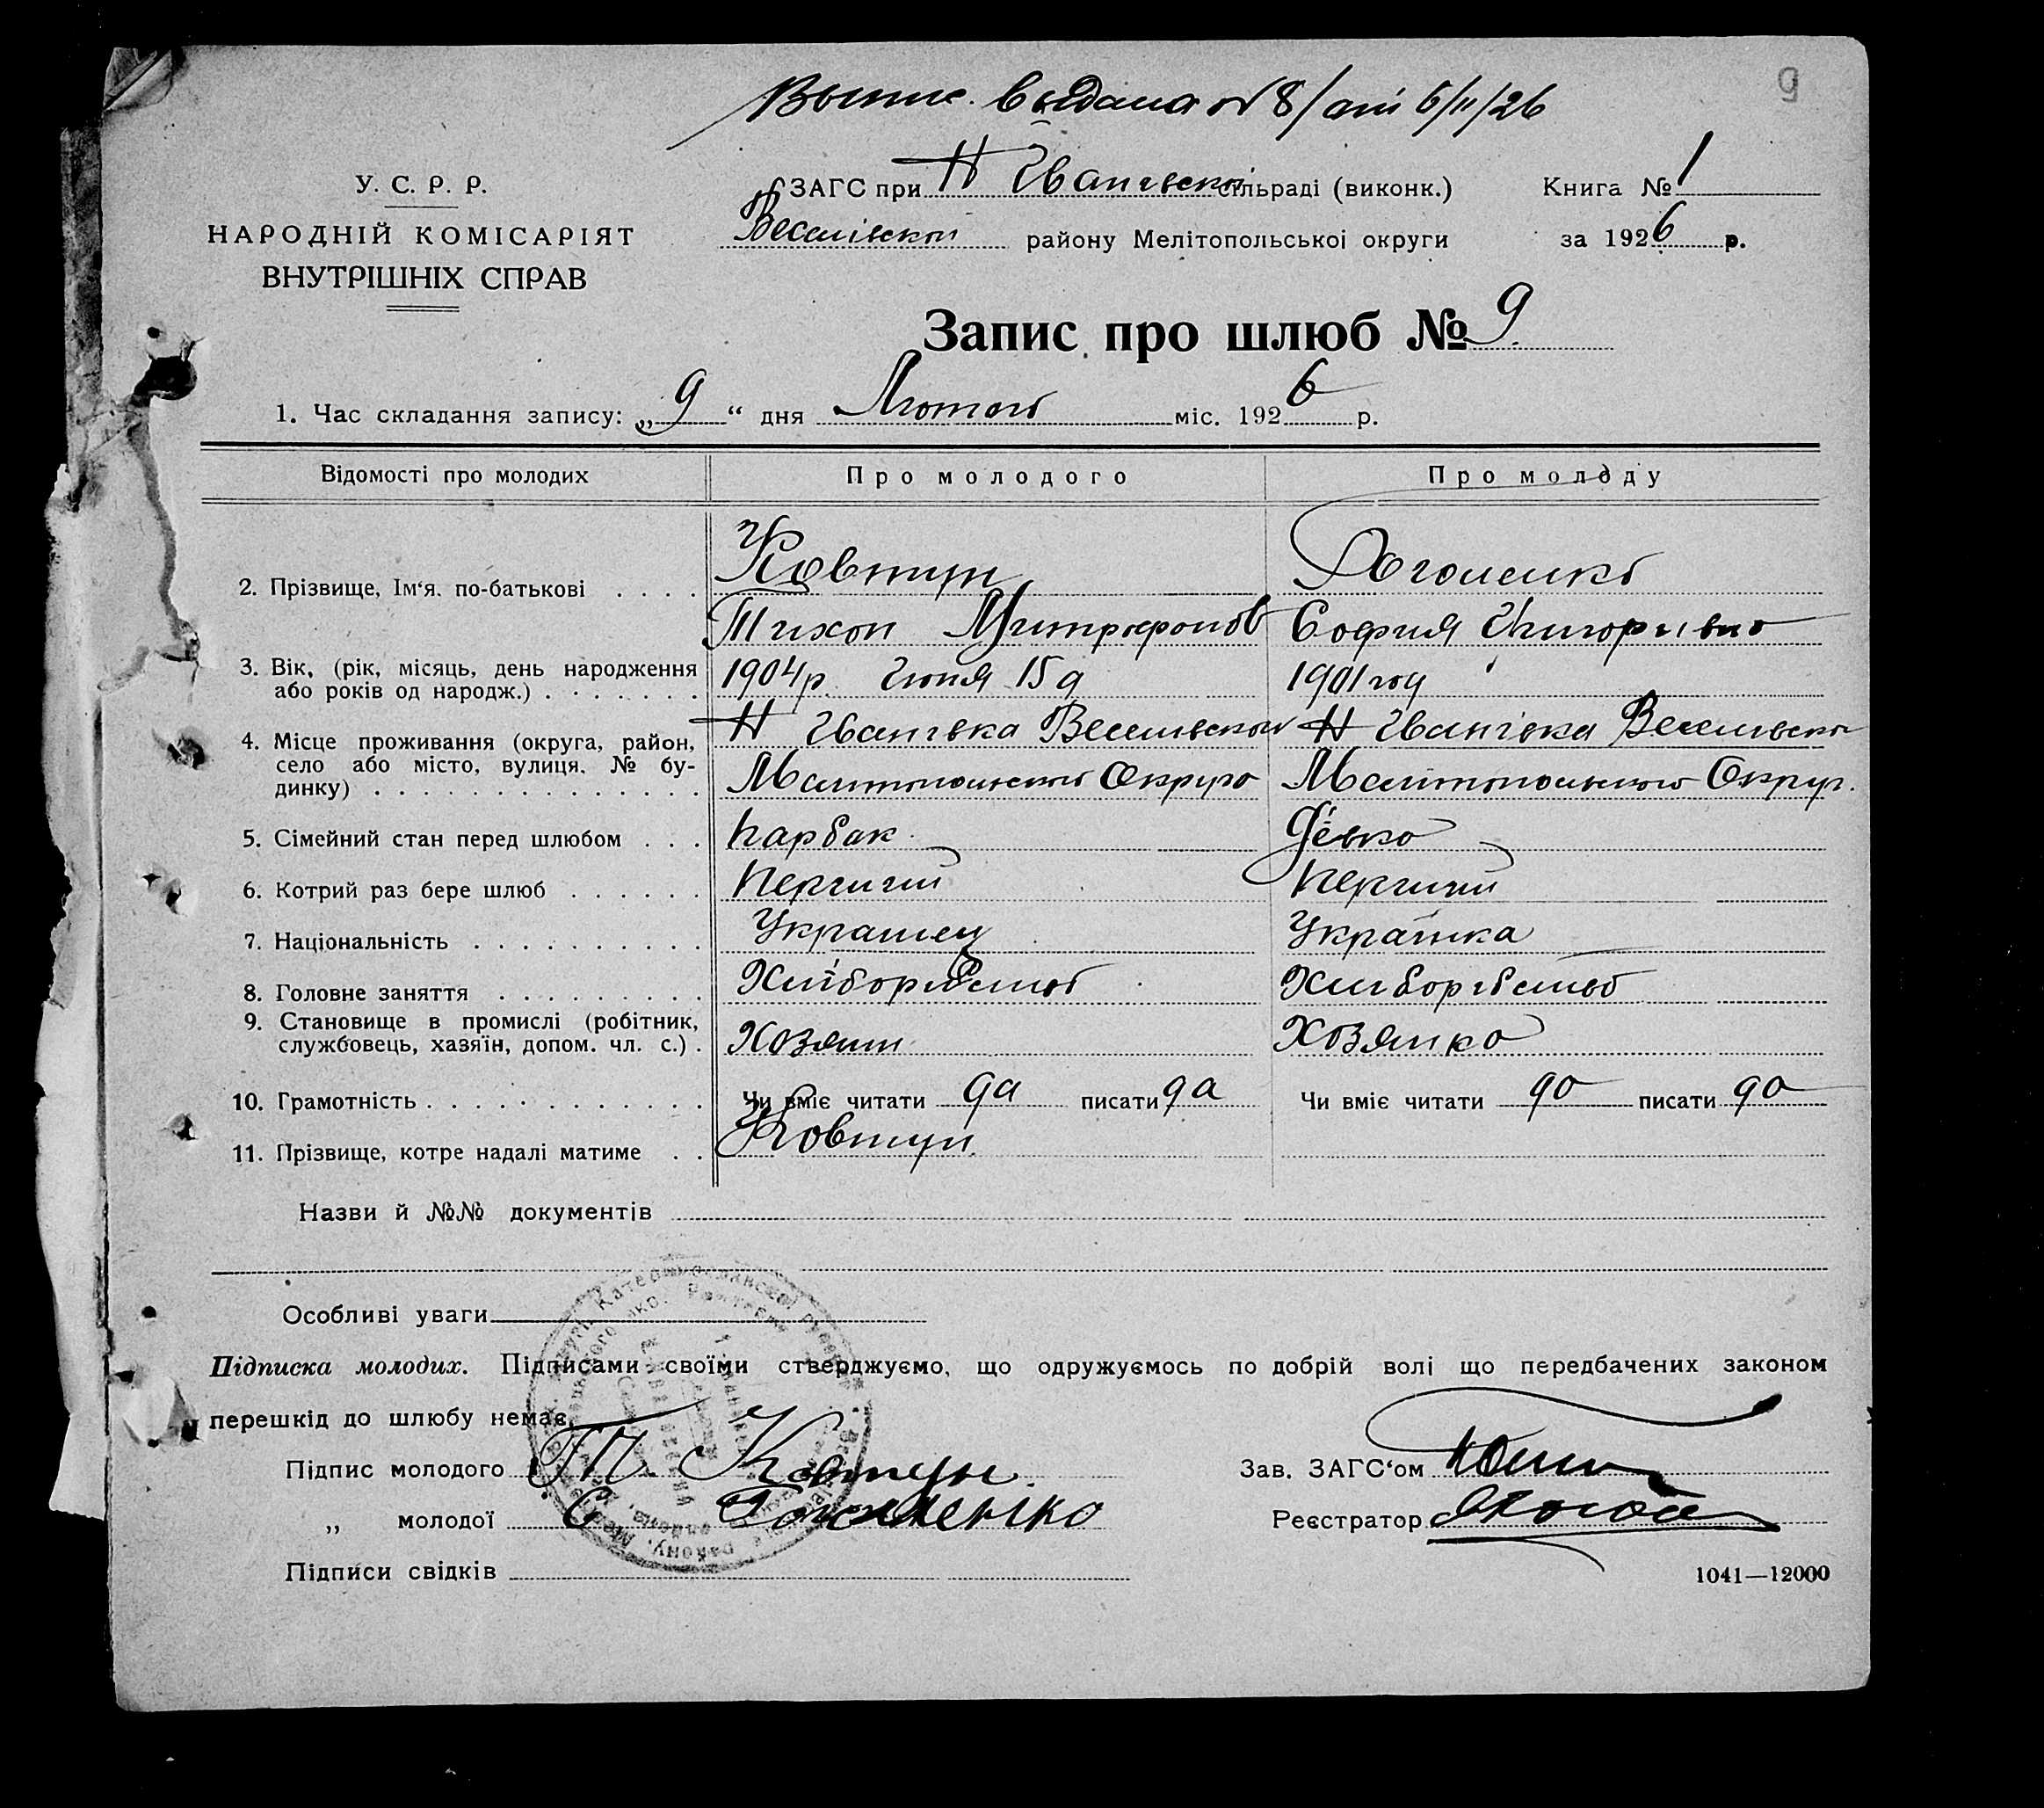 9
Выпис. выдана № 8/ от 6/II/26
У. С. Р. Р.
НАРОДНІЙ КОМІСАРІЯТ
ВНУТРІШНІХ СПРАВ
ЗАГС при Н Іванівській сільраді (виконк.) Книга № 1
Веселівской району Мелітопольської округи за 1926 р.
Запис про шлюб № 9.
1. Час складання запису: „9“ дня Лютого міс. 1926 р.
Відомості про молодих Про молодого Про молоду
2. Прізвище, Ім'я. по-батькові . . . . Ковтун
Тихон Митрофонов София Григоривно
3. Вік, (рік, місяць, день народження або років од народж.) . . . . . . . 1904р. Июня 15 д 1901 год
4. Місце проживання (округа, район, село або місто, вулиця, № будинку) . . . . . . . . . . . . . . . Н Іванівка Веселивской Н Іванівка Веселивской
Мелитопольского Округо Мелитопольского Округ.
5. Сімейний стан перед шлюбом . . . Парбак Дівко
6. Котрий раз бере шлюб . . . . . . Перший Перший
7. Національність . . . . . . . . . . Українец Українка
8. Головне заняття . . . . . . . . . Хліборобство Хлиборобство
9. Становище в промислі (робітник, службовець, хазяїн, допом. чл. с.) . Хозяин Хозяйко
10. Грамотність . . . . . . . . . . . . Чи вміє читати да писати да Чи вміє читати да писати да
11. Прізвище, котре надалі матиме . . Ковтун.
Назви й №№ документів
Особливі уваги
Підписка молодих. Підписами своїми стверджуємо, що одружуємось по добрій волі що передбачених законом
перешкід до шлюбу немає.
Підпис молодого Т. Ковтун Зав. ЗАГС'ом
„ молодої С Реєстратор
Підписи свідків
1041—12000